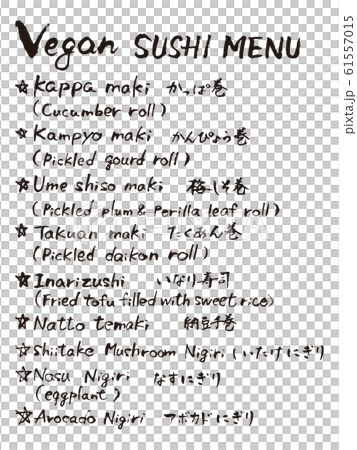 Vegan SUSHI MENU
☆ Kappa maki かっぱ巻
(Cucumber roll)
☆ Kampyo maki かんぴょう巻
(Pickled gourd roll)
☆ Ume shiso maki 梅しそ巻
(Pickled plum & Perilla leaf roll)
☆ Takuan maki たくあん巻
(Pickled daikon roll)
☆ Inarizushi いなり寿司
(Fried tofu filled with sweet rice)
☆ Natto temaki 納豆手巻
☆ Shiitake Mushroom Nigiri しいたけにぎり
☆ Nasu Nigiri なすにぎり
(eggplant)
☆ Avocado Nigiri アボカドにぎり
pixta.jp - 61557015